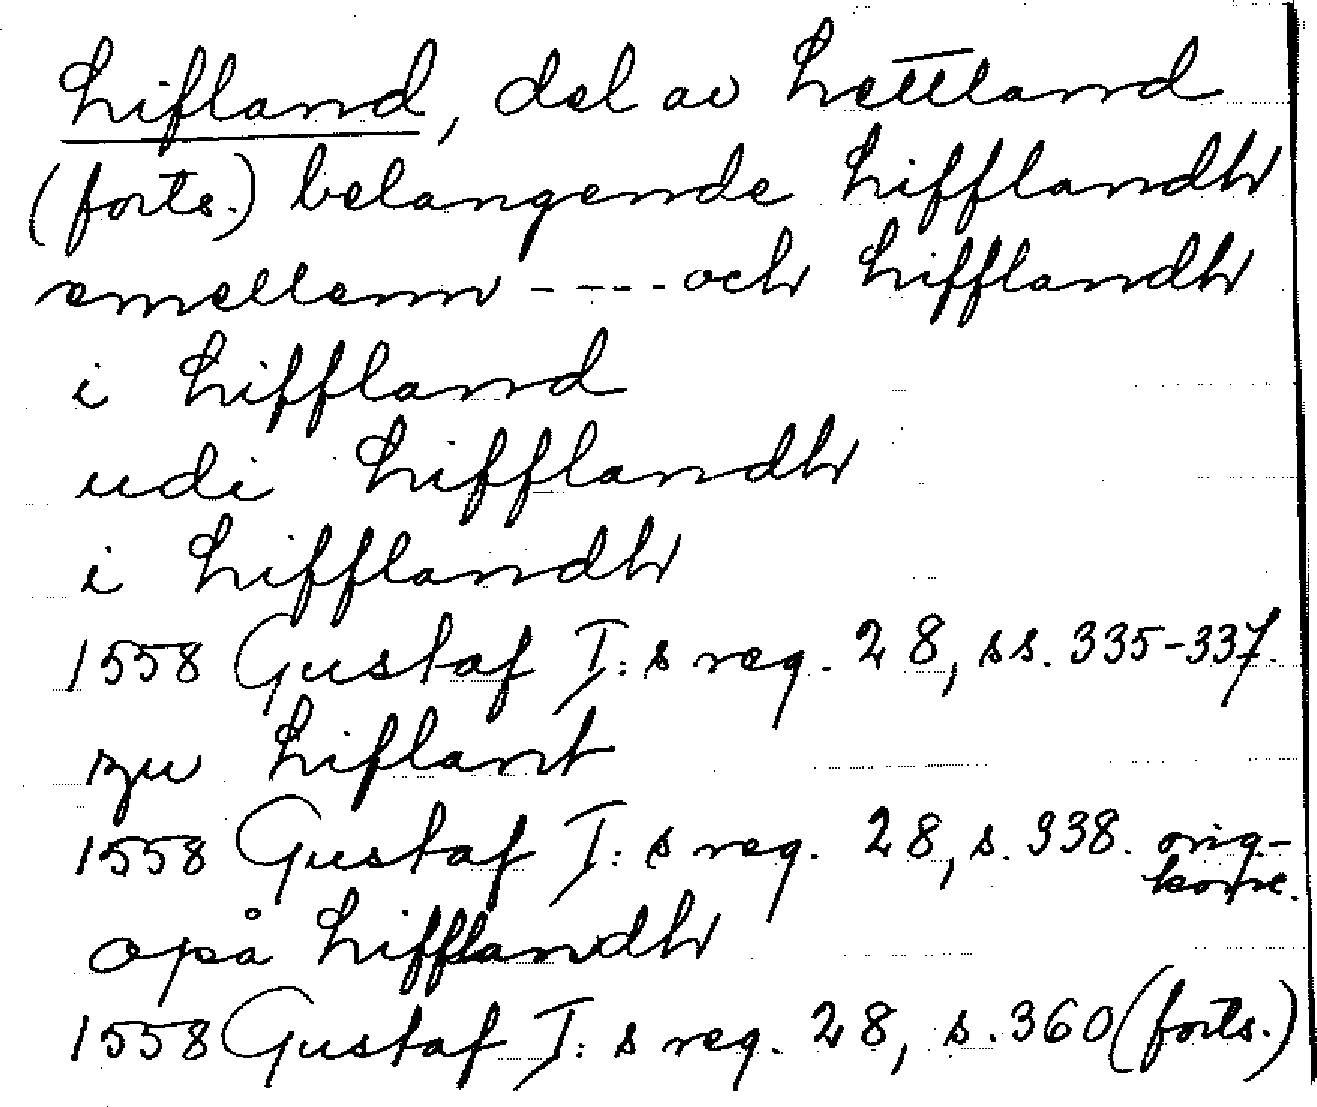 Lifland, del av Lettland
(forts.) belangende Lifflandh
emellenn ---- och Lifflandh
i Liffland
udi Lifflandh
i Lifflandh
1558 Gustaf I:s reg. 28, ss. 335-337.
zu Liflant
1558 Gustaf I:s reg. 28, s. 338. orig-
konc.
opå Lifflandh
1558 Gustaf I:s reg. 28, s. 360 (forts.)